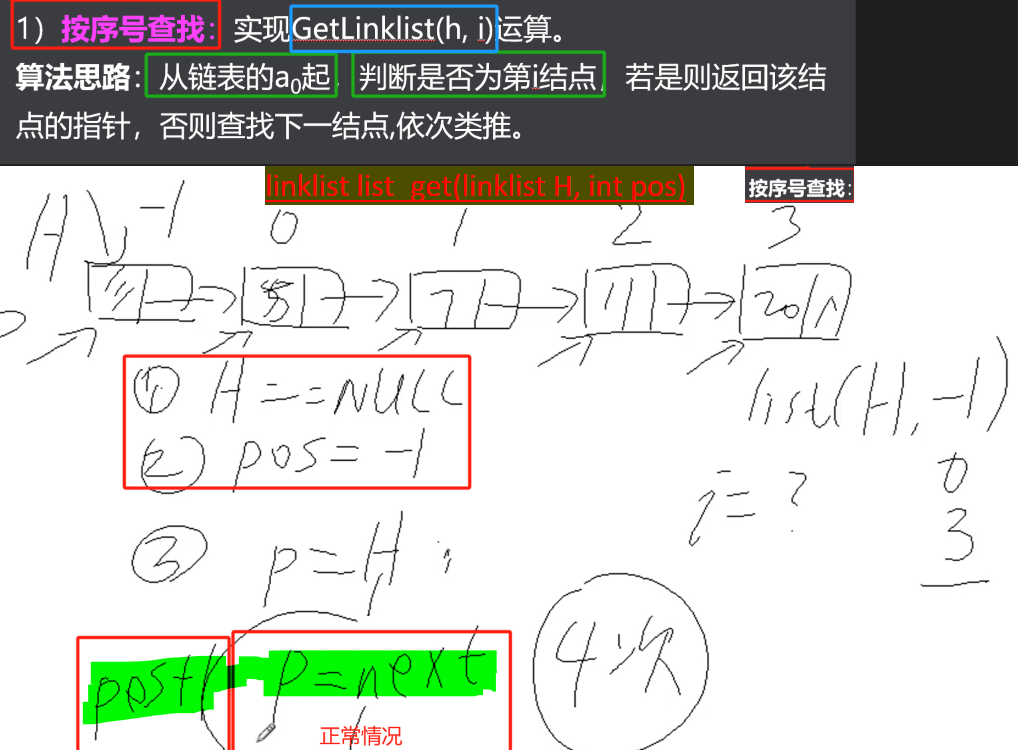 1）按序号查找：实现GetLinklist(h, i)运算。
算法思路：从链表的a₀起，判断是否为第i结点，若是则返回该结
点的指针，否则查找下一结点,依次类推。
linklist list_get(linklist H, int pos)
按序号查找：
H -1 0 1 2 3
5 7 11 20 N
① H == NULL
② pos = -1
list(H, -1)
i = ? 0
3
③ p = H
pos+1 p=next 4次
正常情况